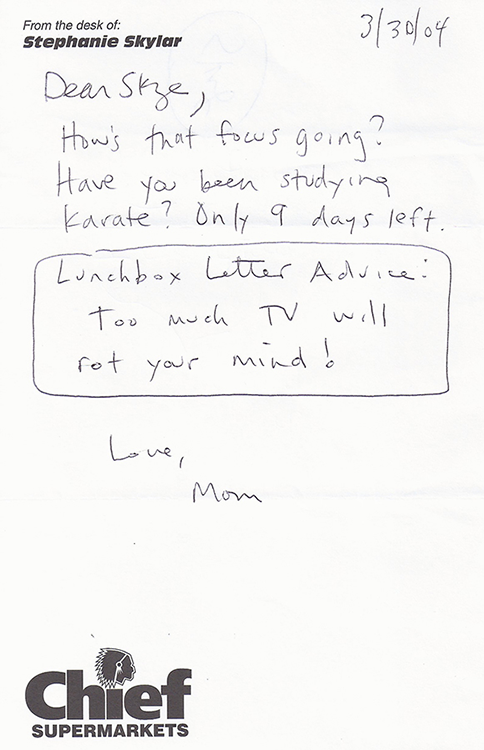 From the desk of:
Stephanie Skylar
3/30/04
Dear Skye,
How's that focus going?
Have you been studying
Karate? Only 9 days left.
Lunchbox Letter Advice:
Too much TV will
rot your mind!
Love,
Mom
Chief
SUPERMARKETS